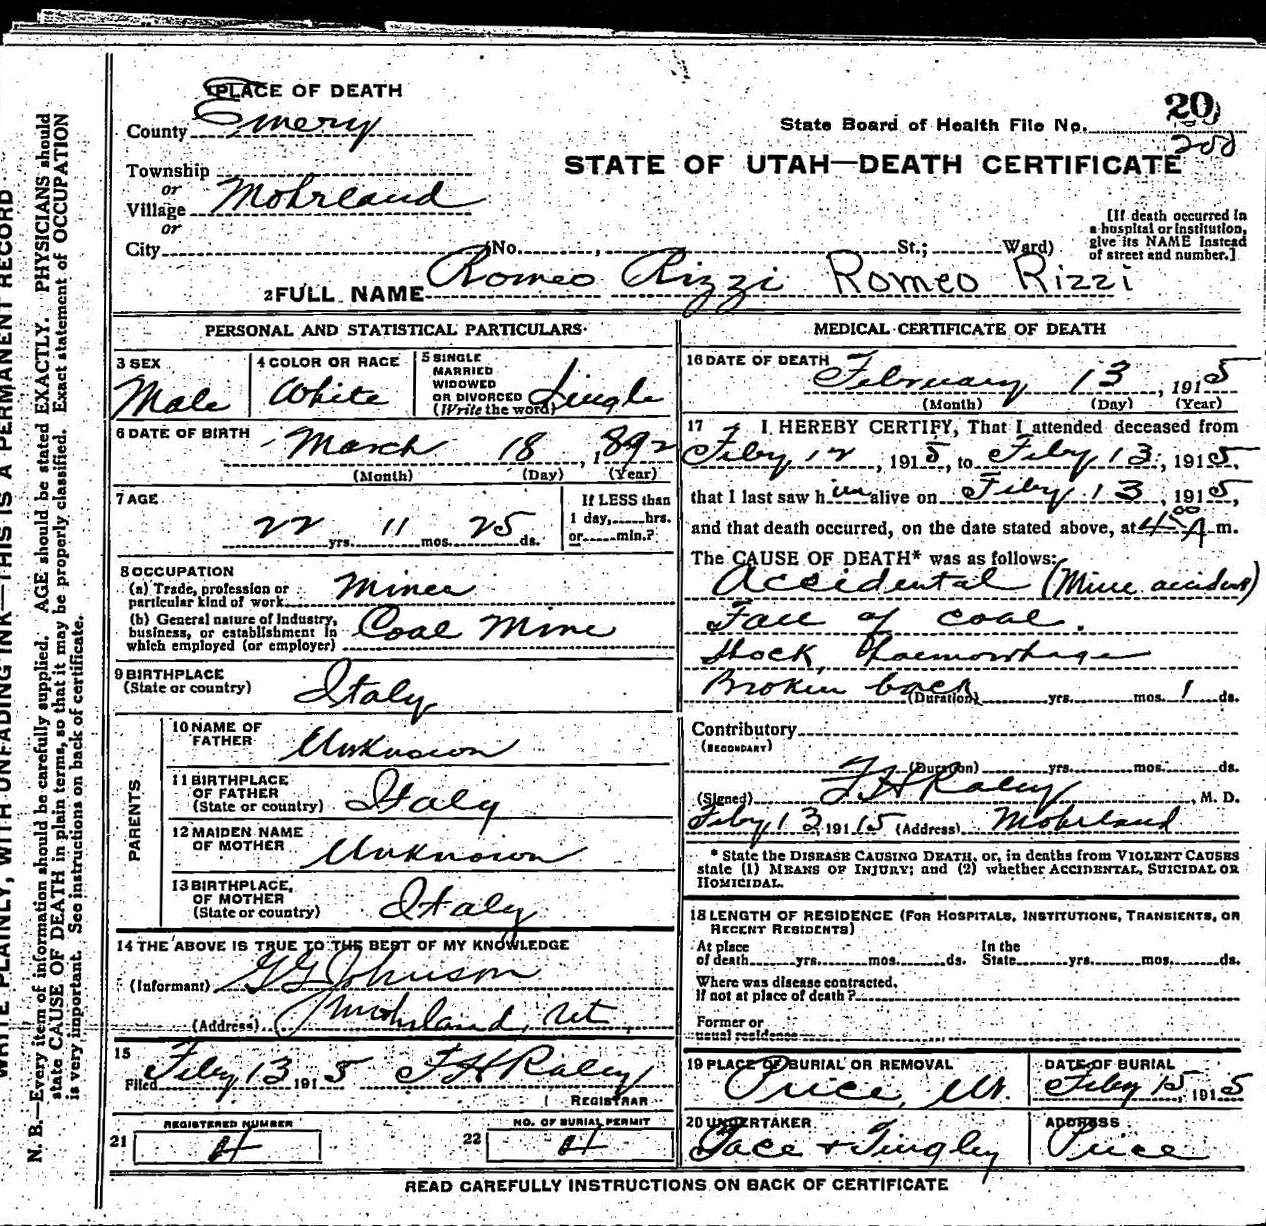 PLACE OF DEATH
County Emery
State Board of Health File No. 20
200
STATE OF UTAH—DEATH CERTIFICATE
Township
or
Village Mohrland
or
City (No. , St.; Ward)
[If death occurred in
a hospital or institution,
give its NAME instead
of street and number.]
2 FULL NAME Romeo Rizzi Romeo Rizzi
PERSONAL AND STATISTICAL PARTICULARS
3 SEX
Male
4 COLOR OR RACE
White
5 SINGLE
MARRIED
WIDOWED
OR DIVORCED
(Write the word) Single
6 DATE OF BIRTH March 18, 1892
(Month) (Day) (Year)
7 AGE
22 yrs. 11 mos. 25 ds.
If LESS than
1 day, hrs.
or min.?
8 OCCUPATION
(a) Trade, profession or
particular kind of work Miner
(b) General nature of Industry,
business, or establishment in
which employed (or employer) Coal Mine
9 BIRTHPLACE
(State or country) Italy
PARENTS
10 NAME OF
FATHER Unknown
11 BIRTHPLACE
OF FATHER
(State or country) Italy
12 MAIDEN NAME
OF MOTHER Unknown
13 BIRTHPLACE,
OF MOTHER
(State or country) Italy
14 THE ABOVE IS TRUE TO THE BEST OF MY KNOWLEDGE
(Informant) G G Johnson
(Address) Mohrland, Ut.
15
Filed Feby 13 1915 F H Raley
REGISTRAR
REGISTERED NUMBER
21 4
NO. OF BURIAL PERMIT
22 4
MEDICAL CERTIFICATE OF DEATH
16 DATE OF DEATH February 13, 1915
(Month) (Day) (Year)
17 I HEREBY CERTIFY, That I attended deceased from
Feby 12, 1915, to Feby 13, 1915,
that I last saw him alive on Feby 13, 1915,
and that death occurred, on the date stated above, at 4 00 A m.
The CAUSE OF DEATH* was as follows:
Accidental (Mine accident)
Fall of coal.
Shock, Haemorrhage
Broken back (Duration) yrs. mos. 1 ds.
Contributory
(SECONDARY)
(Duration) yrs. mos. ds.
(Signed) F H Raley, M. D.
Feby 13 1915 (Address) Mohrland
* State the DISEASE CAUSING DEATH, or, in deaths from VIOLENT CAUSES
state (1) MEANS OF INJURY; and (2) whether ACCIDENTAL, SUICIDAL OR
HOMICIDAL.
18 LENGTH OF RESIDENCE (FOR HOSPITALS, INSTITUTIONS, TRANSIENTS, OR
RECENT RESIDENTS)
At place
of death yrs. mos. ds.
In the
State yrs. mos. ds.
Where was disease contracted,
If not at place of death?
Former or
usual residence
19 PLACE OF BURIAL OR REMOVAL
Price, Ut.
DATE OF BURIAL
Feby 15, 1915
20 UNDERTAKER
& Tingley
ADDRESS
Price
READ CAREFULLY INSTRUCTIONS ON BACK OF CERTIFICATE
WRITE PLAINLY, WITH UNFADING INK—THIS IS A PERMANENT RECORD
N. B.—Every item of information should be carefully supplied. AGE should be stated EXACTLY. PHYSICIANS should
state CAUSE OF DEATH in plain terms, so that it may be properly classified. Exact statement of OCCUPATION
is very important. See instructions on back of certificate.